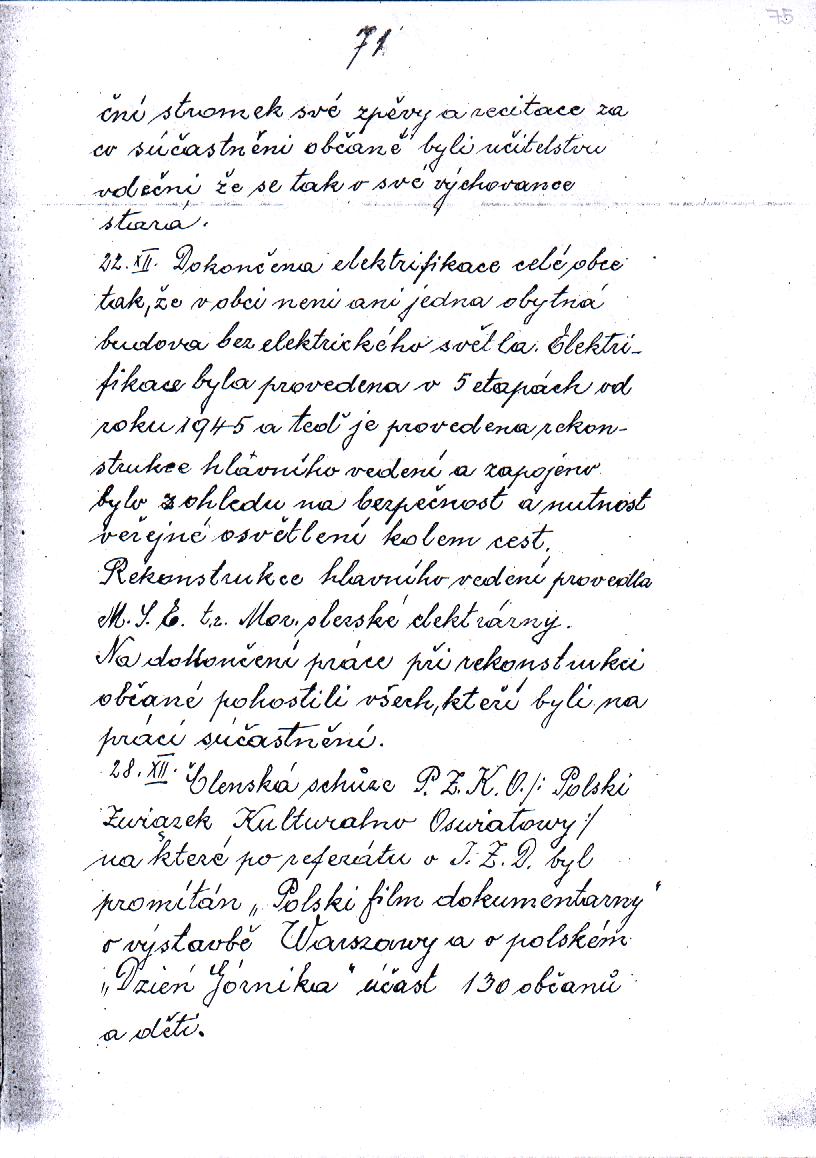 75
71
ční stromek své zpěvy a recitace za
co súčastněni občaně byli učitelstvu
vděčni že se tak o své výchovance
stará.
22. XII. Dokončena elektrifikace celé obce
tak, že v obci neni ani jedna obytná
budova bez elektrického světla. Elektri-
fikace byla provedena v 5 etapách od
roku 1945 a teď je provedena rekon-
strukce hlavního vedení a zapojeno
bylo z ohledu na bezpečnost a nutnost
veřejné osvětlení kolem cest.
Rekonstrukce hlavního vedení provedla
M. S. E. t.z. Mor. slezské elektrárny.
Na dokončení práce při rekonstrukci
občané pohostili všech, kteří byli na
práci súčastnění.
28. XII. Členská schůze P. Z. K. O. /: Polski
Związek Kulturalno Oswiatowy :/
na které po referátu o J. Z. D. byl
promítán „Polski film dokumentarny"
o výstavbě Warszawy a o polském
„Dzień Górnika" účast 130 občanů
a dětí.